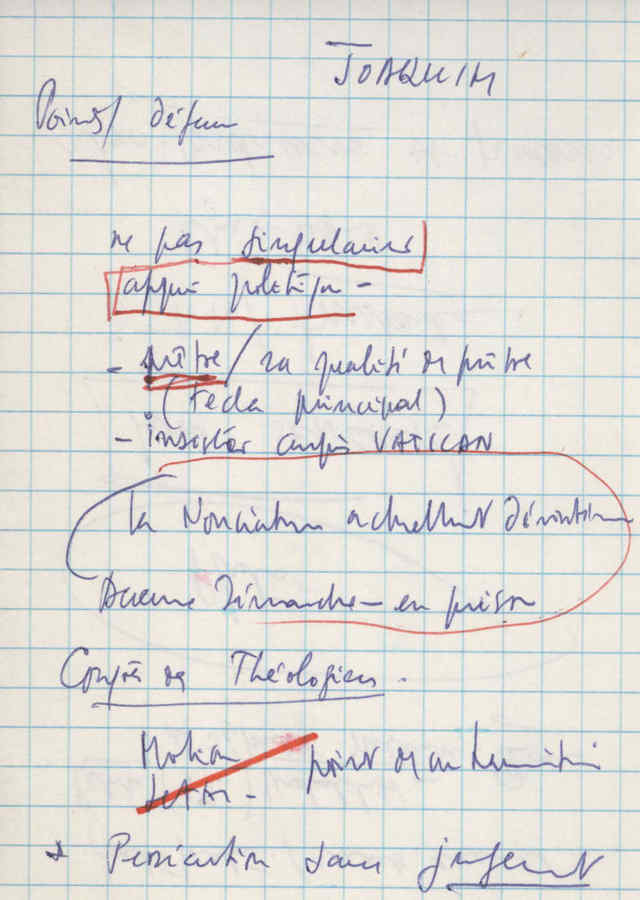 JOAQUIM
Points défense
ne pas singulariser
appui politique -
- prêtre / sa qualité de prêtre
(Tecla principal)
- insister auprès VATICAN
la Nonciature actuellement
Aucune Démarche - en prison
Congrès de Théologiens.
Motion point de
* Persécution sans jugement